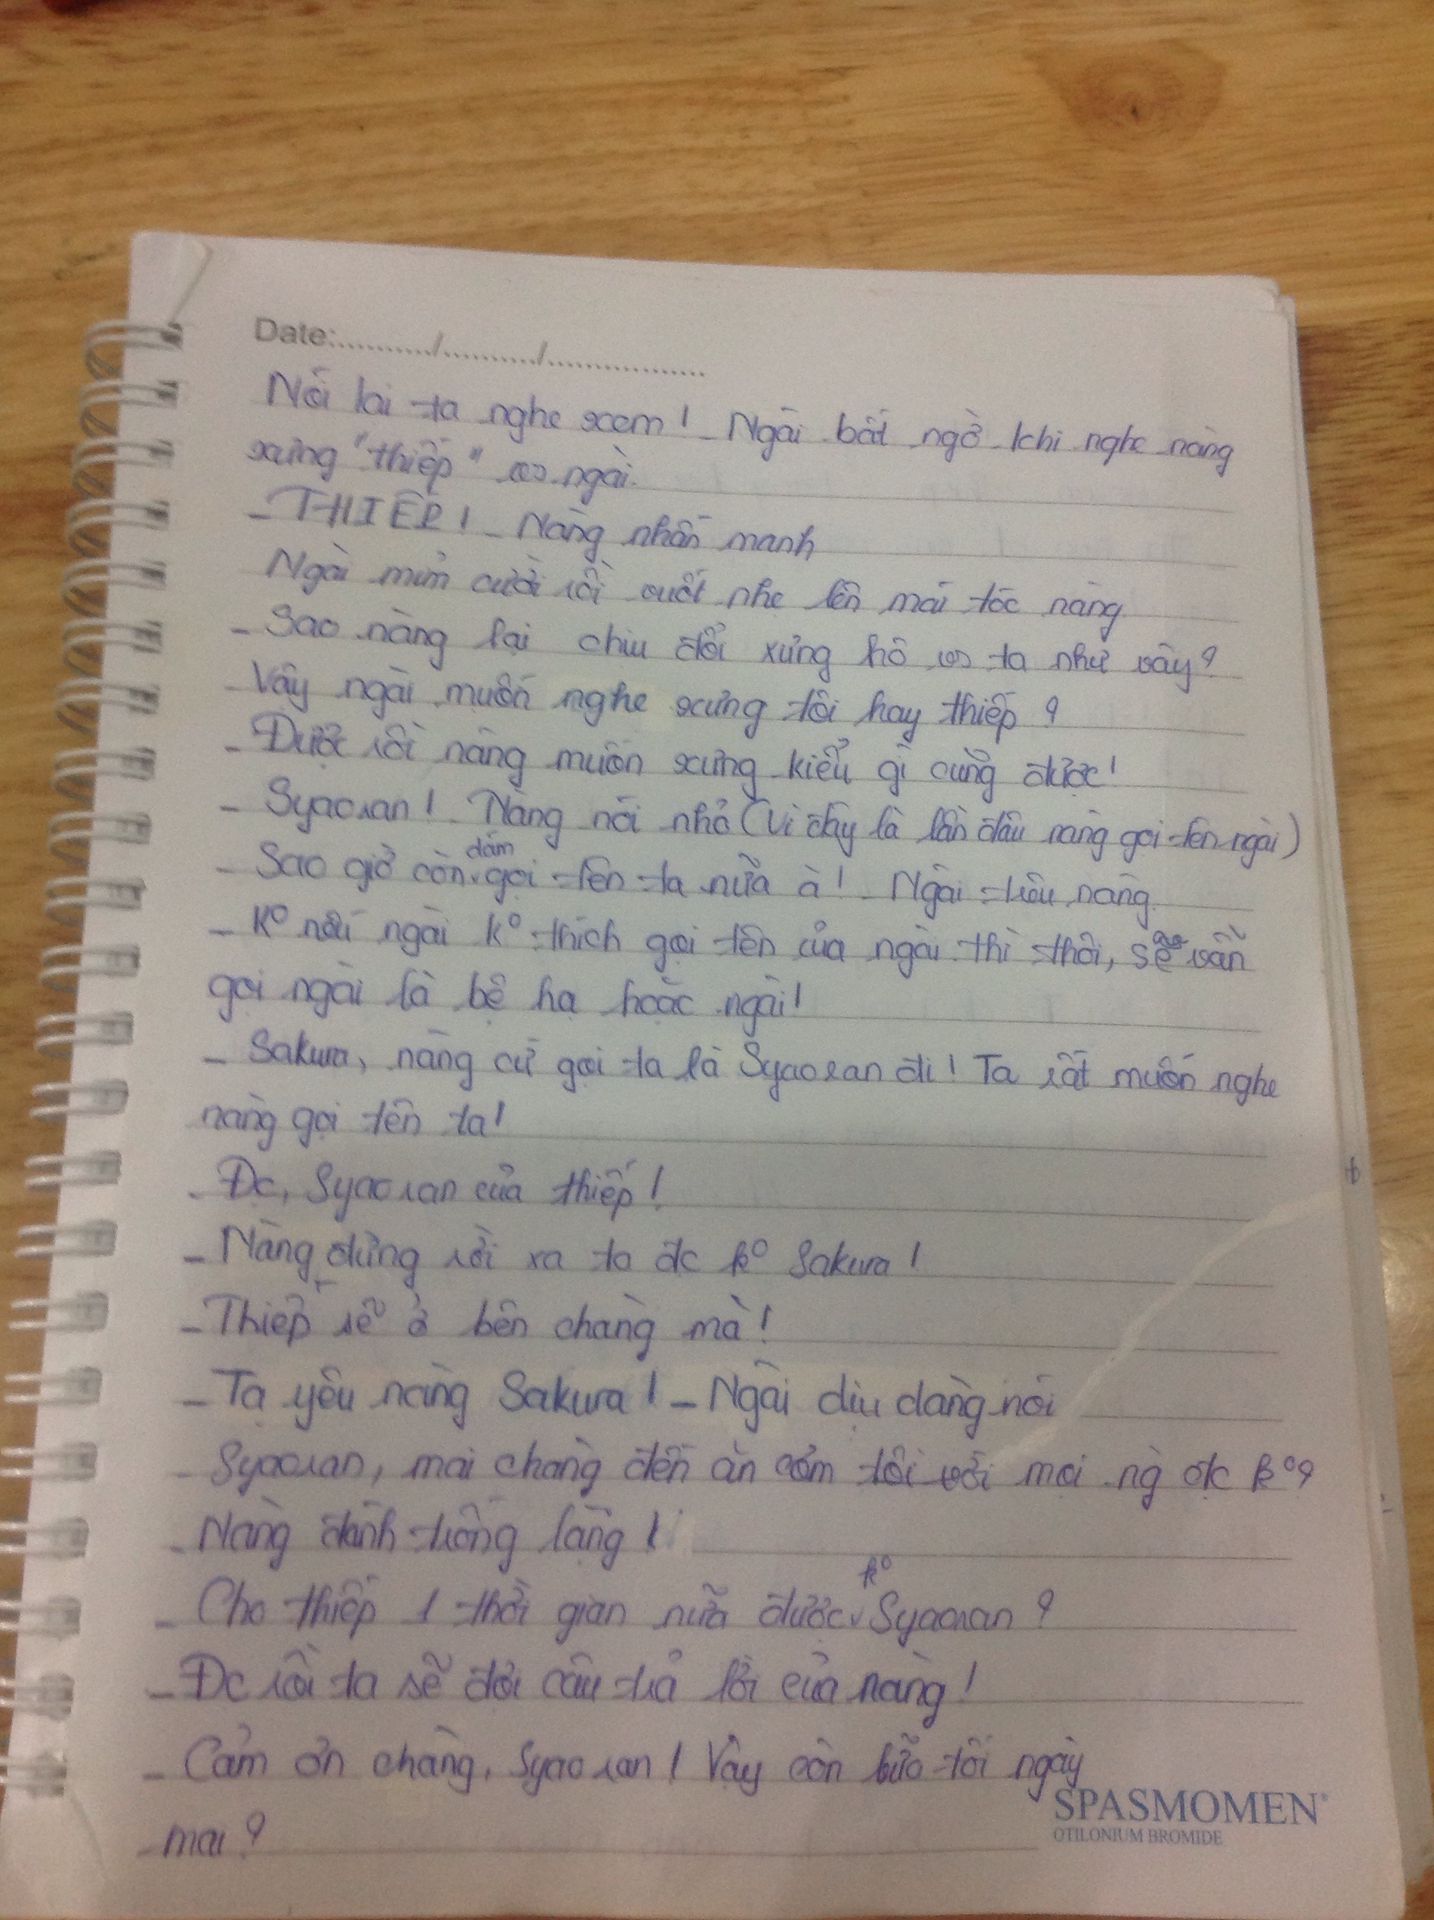 Date:........../........../.................
Nói lại ta nghe xem! - Ngài bất ngờ khi nghe nàng
xưng "thiếp" vs ngài.
- THIẾP! - Nàng nhấn mạnh
Ngài mỉm cười rồi vuốt nhẹ lên mái tóc nàng
- Sao nàng lại chịu đổi xưng hô vs ta như vậy?
- Vậy ngài muốn nghe xưng tôi hay thiếp?
- Được rồi nàng muốn xưng kiểu gì cũng được!
- Syaoran! - Nàng nói nhỏ (Vì đây là lần đầu nàng gọi tên ngài)
- Sao giờ còn dám gọi tên ta nữa à! - Ngài trêu nàng.
- Ko nếu ngài ko thích gọi tên của ngài thì thôi, sẽ vẫn
gọi ngài là bệ hạ hoặc ngài!
- Sakura, nàng cứ gọi ta là Syaoran đi! Ta rất muốn nghe
nàng gọi tên ta!
- Đc, Syaoran của thiếp!
- Nàng đừng rời xa ta đc ko Sakura!
- Thiếp sẽ ở bên chàng mà!
- Ta yêu nàng Sakura! - Ngài dịu dàng nói
- Syaoran, mai chàng đến ăn cơm tối với mọi ng đc ko?
- Nàng đánh trống lảng!
- Cho thiếp 1 thời gian nữa được ko Syaoran?
- Đc rồi ta sẽ đợi câu trả lời của nàng!
- Cảm ơn chàng, Syaoran! Vậy còn bữa tối ngày
mai?
SPASMOMEN®
OTILONIUM BROMIDE